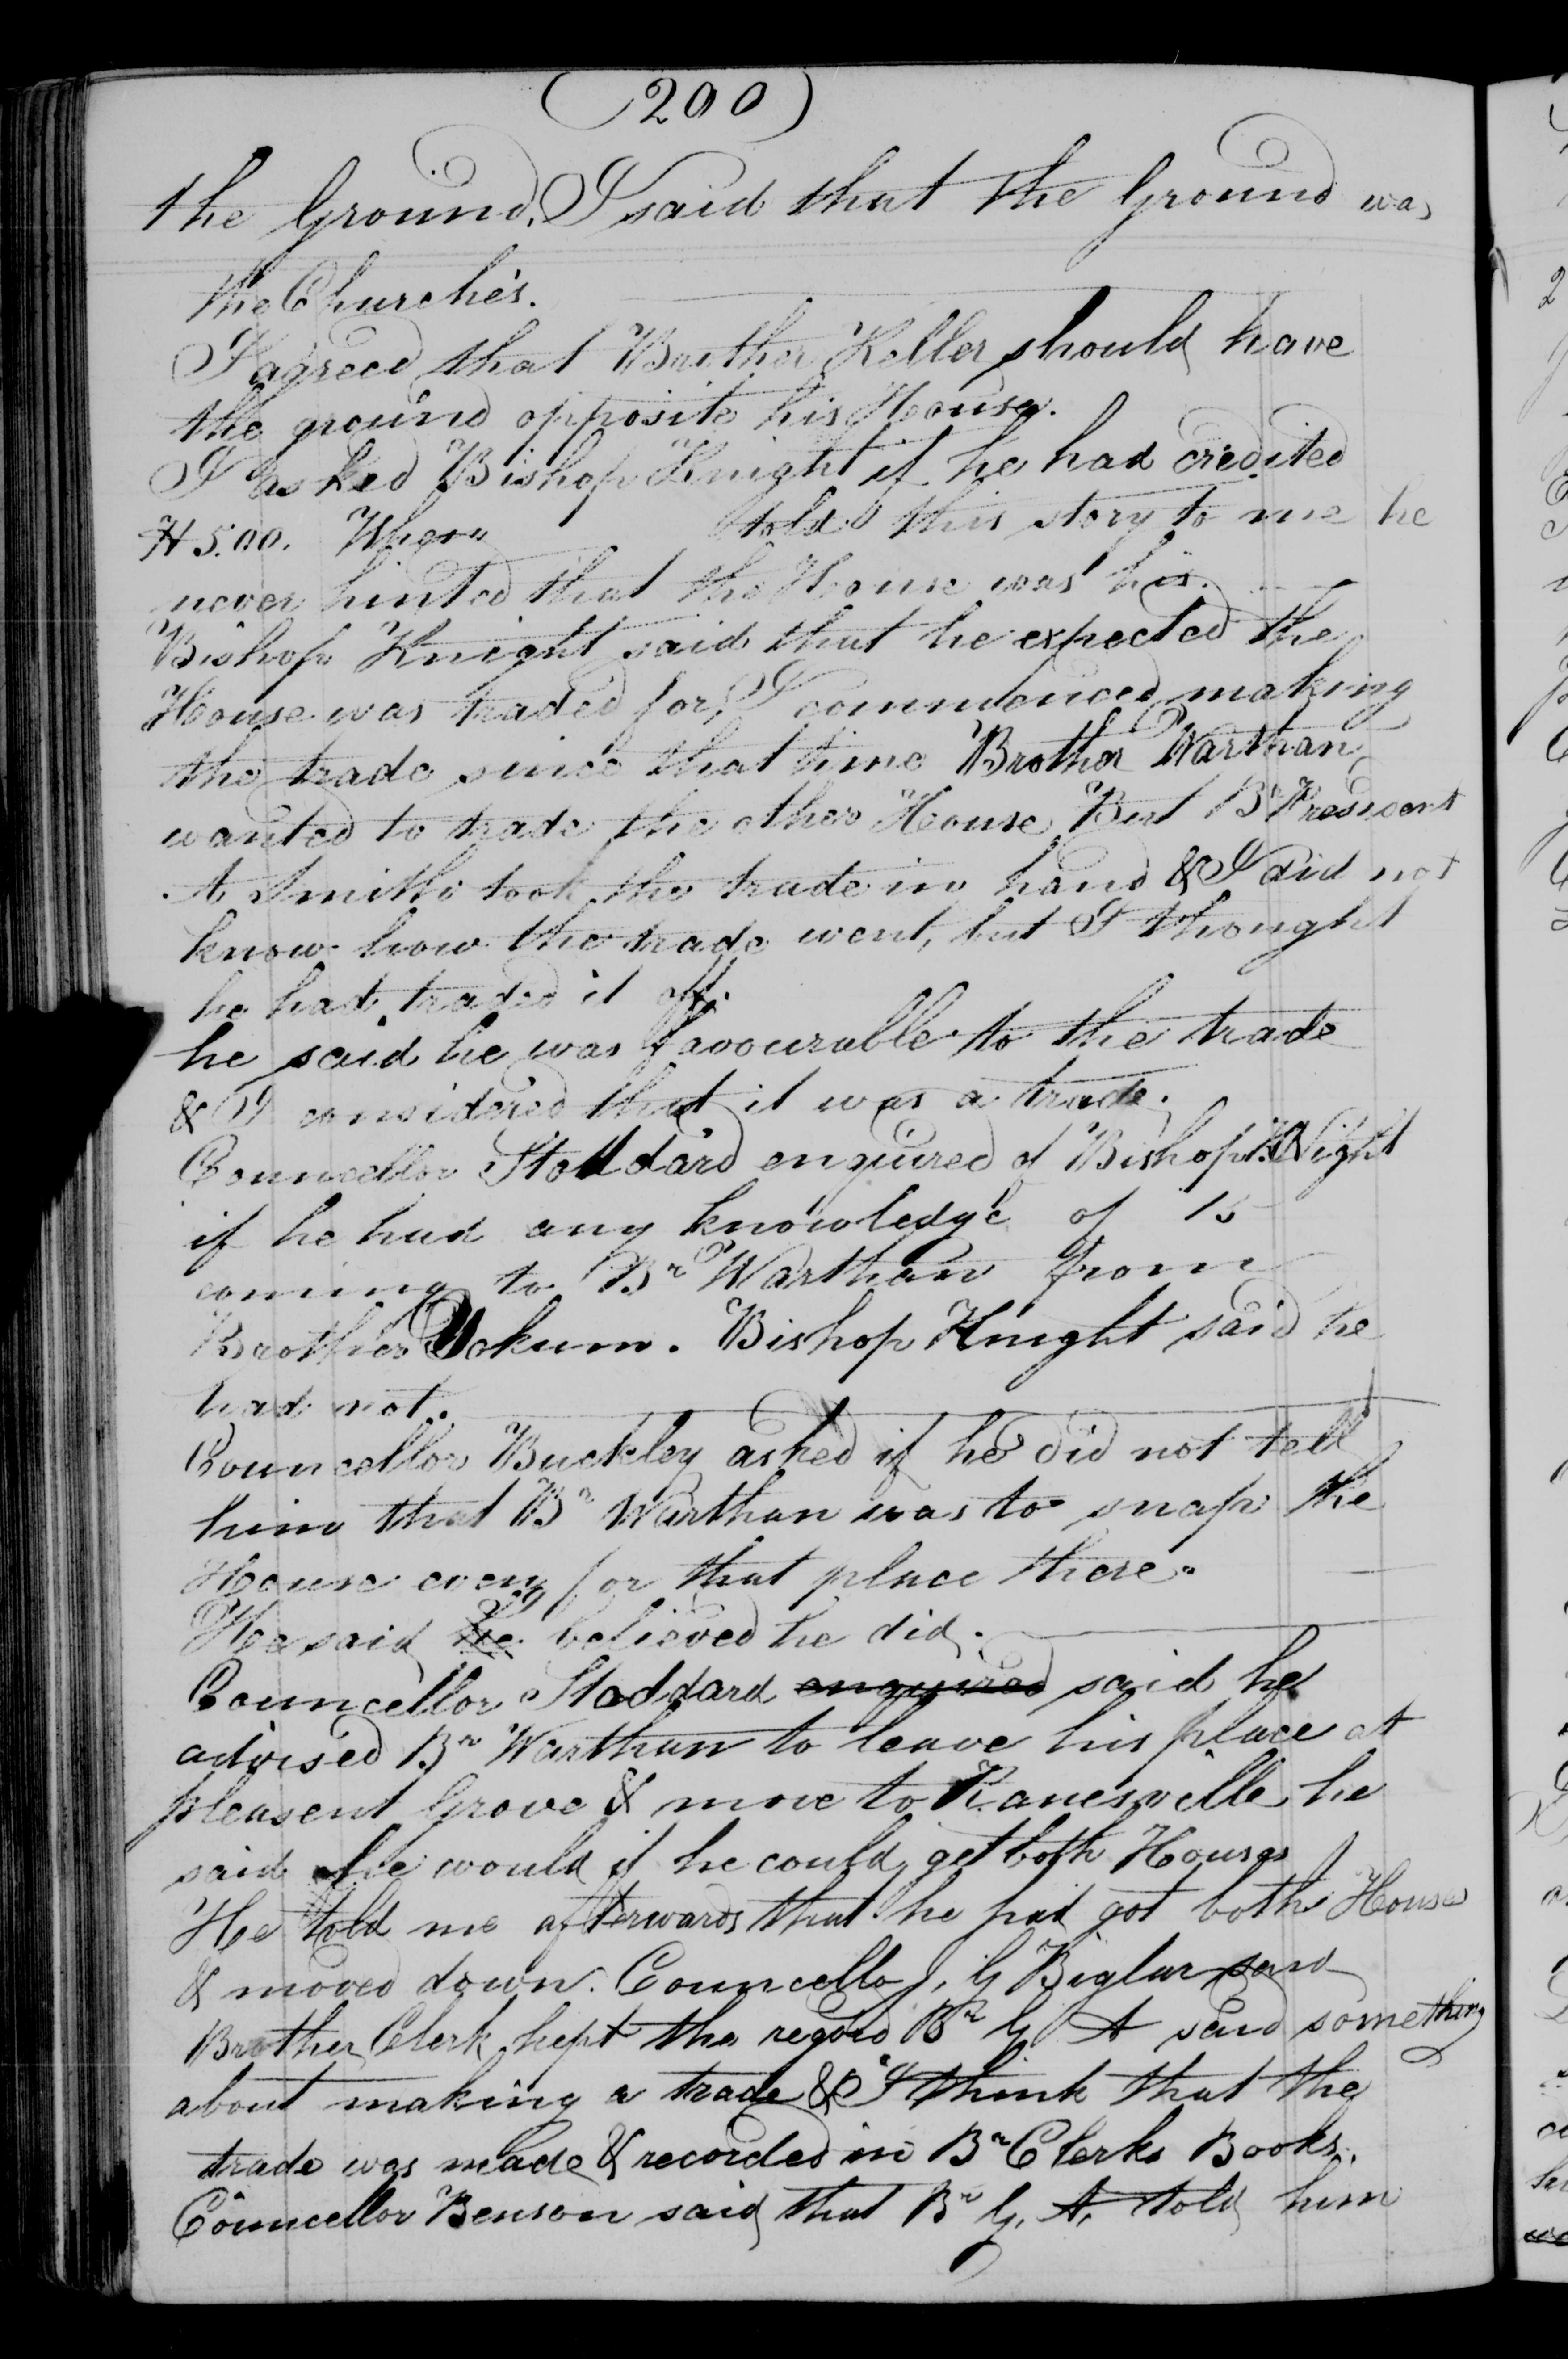 (200)
the Ground. I said that the Ground was
the Churche's.
I agreed that Brother Keller should have
the ground opposite his House.
I asked Bishop Knight if he had credited
5.00. When told this story to me he
never hinted that the House was his.
Bishop Knight said that he expected the
House was traded for, I commenced making
the trade since that time Brother Warthan
wanted to trade the other House But Br President
A Smith took the trade in hand & I did not
know how the trade went, but I thought
he had traded it off.
he said he was favourable to the trade
& I considered that it was a trade.
Councellor Stoddard enquired of Bishop Knight
if he had any knowledge of 15
coming to Br Warthan from
Brother Yokum. Bishop Knight said he
had not.
Councellor Buckley asked if he did not tell
him that Br Warthan was to swap the
House even for that place there.
He said he believed he did.
Councellor Stoddard enquired said he
advised Br Warthan to leave his place at
pleasent Grove & move to Kanesville he
said he would if he could get both Houses
He told me afterwards that he had got both Houses
& moved down. Councellor J, G Biglar said
Brother Clerk kept the record Br G A said something
about making a trade & I think that the
trade was made & recorded in Br Clerks Books.
Councellor Benson said that Br G, A, told him